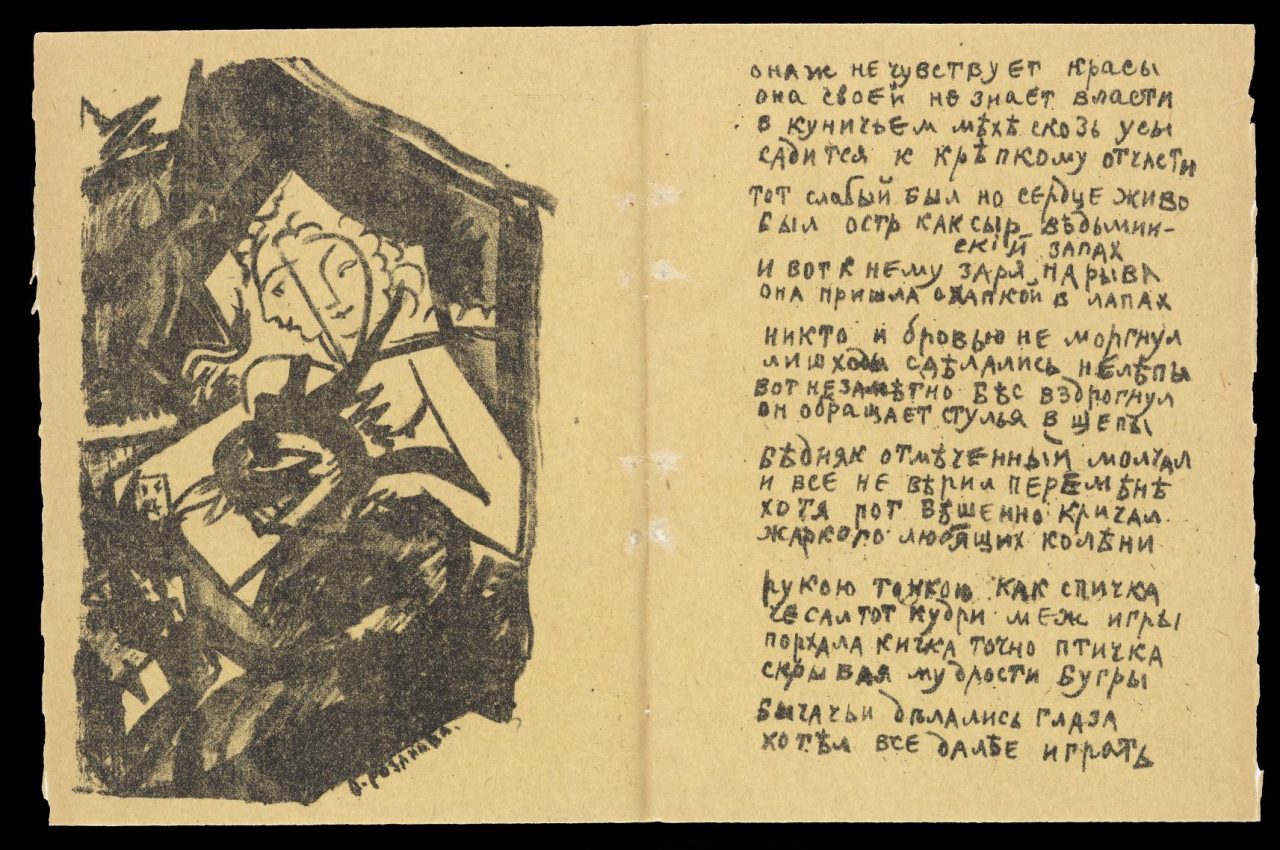 О. Розанова.
онаж не чувствует красы
она своей не знает власти
в куничьем мѣхѣ скозь усы
садится к крѣпкому отчасти
тот слабый был но сердце живо
был остр как сыр вѣдьмин-
скій запах
и вот к нему заря нарыва
она пришла охапкой в лапах
никто и бровью не моргнул
лиш ходы сдѣлались нелѣпы
вот незамѣтно бѣс вздрогнул
он обращает стулья в щепы
бѣдняк отмѣченный молчал
и все не вѣрил перемѣнѣ
хотя рот бѣшенно кричал
жаркого любящих колѣни
рукою тонкою как спичка
чесал тот кудри меж игры
порхала кичка точно птичка
скрывая мудрости бугры
бычачьи дѣлались глаза
хотѣл все далѣе играть